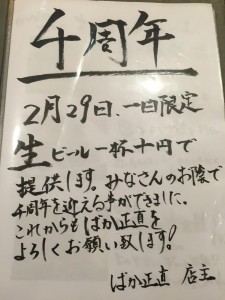 千周年
2月29日、一日限定
生ビール一杯十円で
提供します。みなさんのお陰で
千周年を迎える事ができました。
これからもばか正直を
よろしくお願い致します!
ばか正直 店主